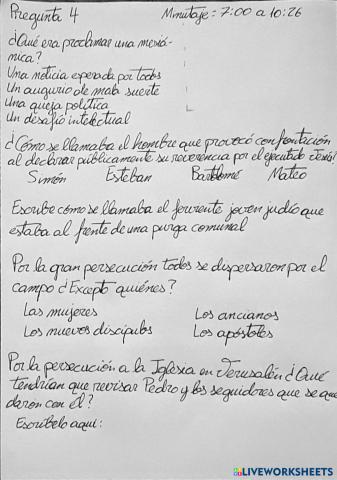 Pregunta 4 Minutaje: 7:00 a 10:26
¿Qué era proclamar una mesiá-
nica?
Una noticia esperada por todos
Un augurio de mala suerte
Una queja política
Un desafío intelectual
¿Cómo se llamaba el hombre que provocó confrontación
al declarar públicamente su reverencia por el ejecutado Jesús?
Simón Esteban Bartolomé Mateo
Escribe cómo se llamaba el ferviente joven judío que
estaba al frente de una purga comunal
Por la gran persecución todos se dispersaron por el
campo ¿Excepto quiénes?
Las mujeres Los ancianos
Los nuevos discípulos Los apóstoles
Por la persecución a la Iglesia en Jerusalén ¿Qué
tendrían que revisar Pedro y los seguidores que se que
daron con él?
Escríbelo aquí:
LIVEWORKSHEETS